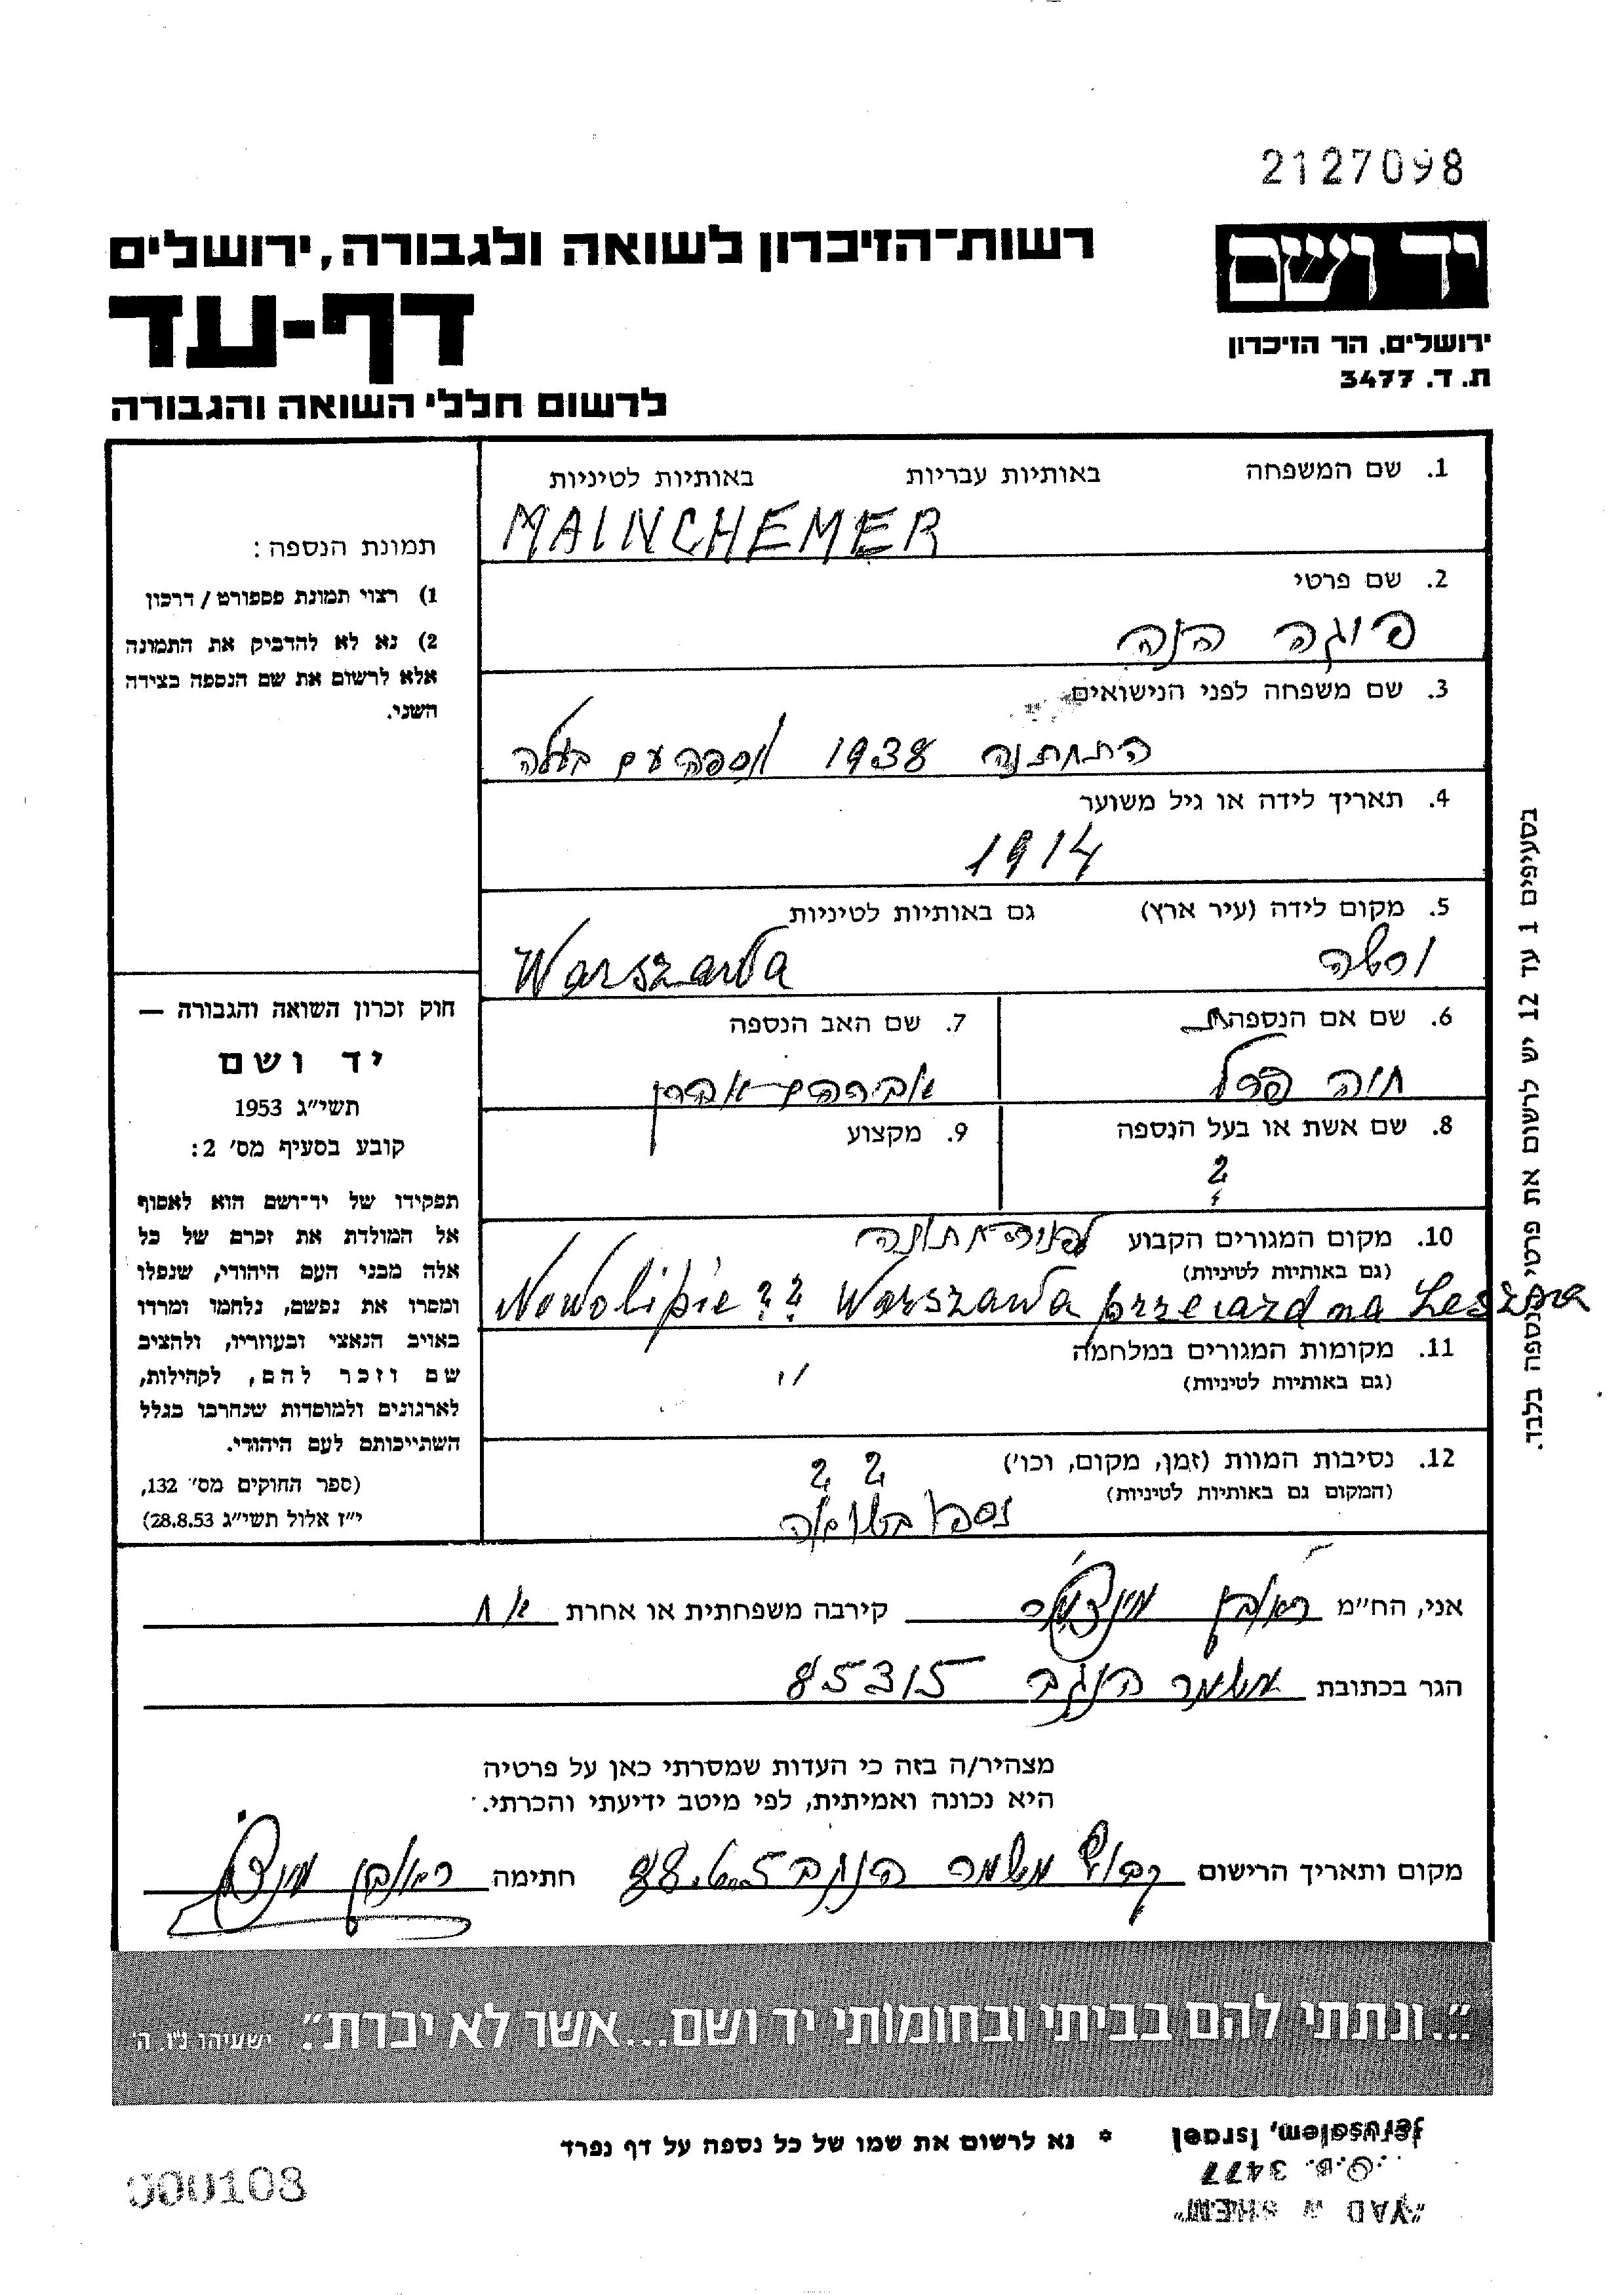 2127098
יד ושם
רשות־הזיכרון לשואה ולגבורה, ירושלים
דף-עד
ירושלים, הר הזיכרון
ת. ד. 3477
לרשום חללי השואה והגבורה
1. שם המשפחה באותיות עבריות באותיות לטיניות
MAINCHEMER
2. שם פרטי
פוגה הנה
3. שם משפחה לפני הנישואים
התחתנה 1938 נספה עם בעלה
4. תאריך לידה או גיל משוער
1914
5. מקום לידה (עיר ארץ) גם באותיות לטיניות
ורשה Warszawa
6. שם אם הנספה
חוה פרל
7. שם האב הנספה
אברהם אהרן
8. שם אשת או בעל הנספה
?
9. מקצוע
10. מקום המגורים הקבוע לפני החתונה
(גם באותיות לטיניות)
Nowolipie ?? Warszawa przeiazd na Leszna
11. מקומות המגורים במלחמה
(גם באותיות לטיניות)
"
12. נסיבות המוות (זמן, מקום, וכו')
(המקום גם באותיות לטיניות)
? ?
נספו בשואה
תמונת הנספה:
1) רצוי תמונת פספורט / דרכון
2) נא לא להדביק את התמונה
אלא לרשום את שם הנספה בצידה
השני.
חוק זכרון השואה והגבורה —
יד ושם
תשי"ג 1953
קובע בסעיף מס' 2:
תפקידו של יד־ושם הוא לאסוף
אל המולדת את זכרם של כל
אלה מבני העם היהודי, שנפלו
ומסרו את נפשם, נלחמו ומרדו
באויב הנאצי ובעוזריו, ולהציב
שם וזכר להם, לקהילות,
לארגונים ולמוסדות שנחרבו בגלל
השתייכותם לעם היהודי.
(ספר החוקים מס' 132,
י"ז אלול תשי"ג 28.8.53)
בסעיפים 1 עד 12 יש לרשום את פרטי הנספה בלבד.
אני, הח"מ ראובן קירבה משפחתית או אחרת אח
הגר בכתובת משמר הנגב 85315
מצהיר/ה בזה כי העדות שמסרתי כאן על פרטיה
היא נכונה ואמיתית, לפי מיטב ידיעתי והכרתי.
מקום ותאריך הרישום קבוץ משמר הנגב חתימה ראובן
"...ונתתי להם בביתי ובחומותי יד ושם...אשר לא יכרת". ישעיהו נ"ו, ה'
* נא לרשום את שמו של כל נספה על דף נפרד
000108
"YAD W SHEM"
P.O.B. 3477
Jerusalem, Israel